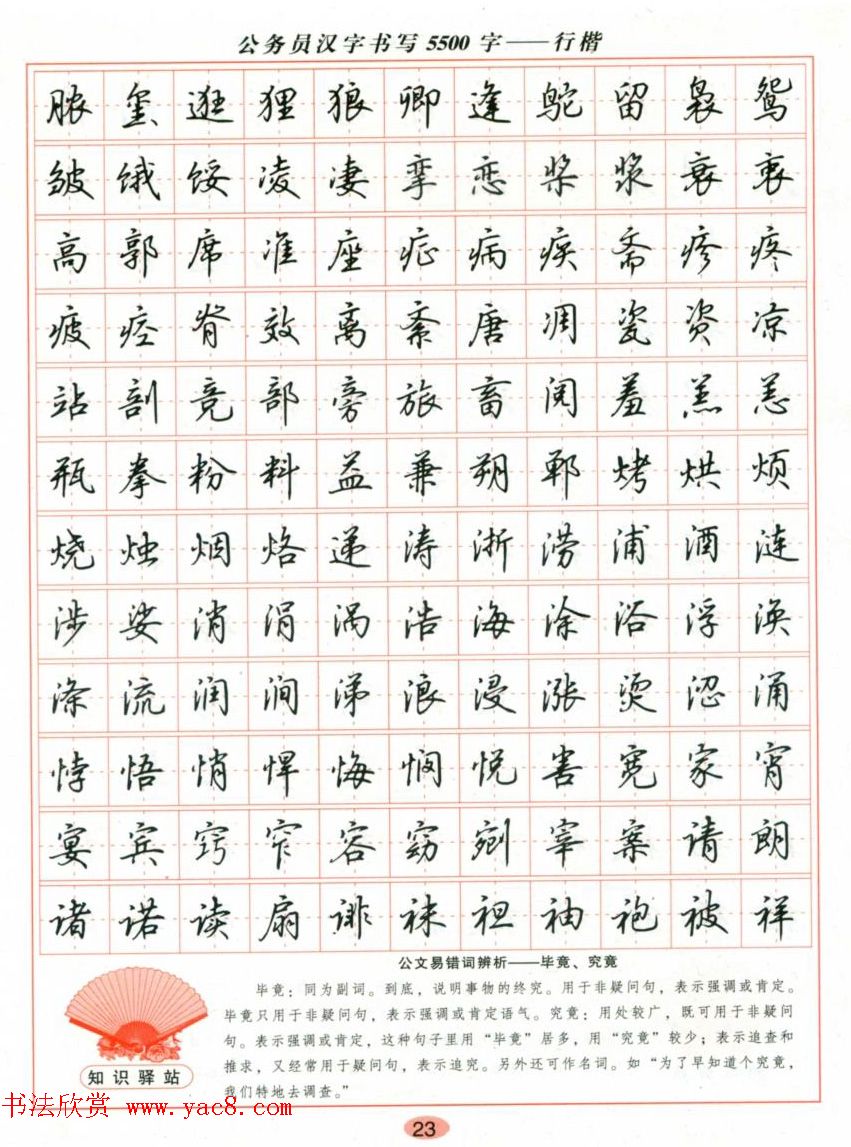 公务员汉字书写5500字——行楷
脓玺逛狸狼卿逢鸵留袅鸳
皱饿馁凌凄挛恋桨浆衰衷
高郭席准座症病疾斋疹疼
疲痉脊效离紊唐凋瓷资凉
站剖竞部旁旅畜阅羞羔恙
瓶拳粉料益兼朔郸烤烘烦
烧烛烟烙递涛浙涝浦酒涟
涉娑消涓涡浩海涂浴浮涣
涤流润涧涕浪浸涨烫涩涌
悖悟悄悍悔悯悦害宽家宵
宴宾窍窄容窈剜宰案请朗
诸诺读扇诽袜袒袖袍被祥
公文易错词辨析——毕竟、究竟
毕竟：同为副词。到底，说明事物的终究。用于非疑问句，表示强调或肯定。
毕竟只用于非疑问句，表示强调或肯定语气。究竟：用处较广，既可用于非疑问
句。表示强调或肯定，这种句子里用“毕竟”居多，用“究竟”较少；表示追查和
推求，又经常用于疑问句，表示追究。另外还可作名词。如“为了早知道个究竟，
我们特地去调查。”
知识驿站
书法欣赏 www.yac8.com
23